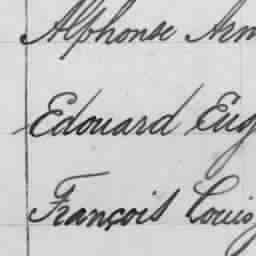 Alphonse Arm
Edouard Eug
François Louis